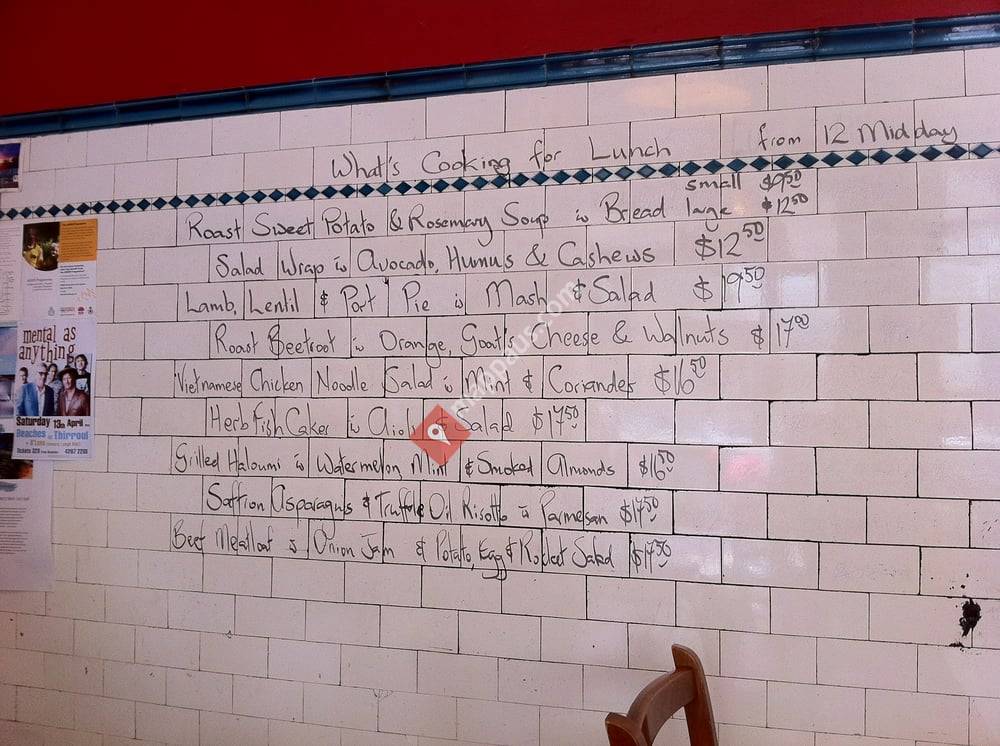 What's Cooking for Lunch from 12 Midday
small $9.50
Roast Sweet Potato & Rosemary Soup w Bread large $12.50
Salad Wrap w Avocado, Humus & Cashews $12.50
Lamb, Lentil & Port Pie w Mash & Salad $19.50
Roast Beetroot w Orange, Goat's Cheese & Walnuts $17.00
Vietnamese Chicken Noodle Salad w Mint & Coriander $16.50
Herb Fish Cakes w Aioli & Salad $17.50
Grilled Haloumi w Watermelon, Mint & Smoked Almonds $16.50
Saffron Asparagus & Truffle Oil Risotto w Parmesan $17.50
Beef Meatloaf w Onion Jam & Potato, Egg & Rocket Salad $17.50
mental as
anything
Saturday 13th April
Beaches Thirroul
Tickets $20 4267 2299